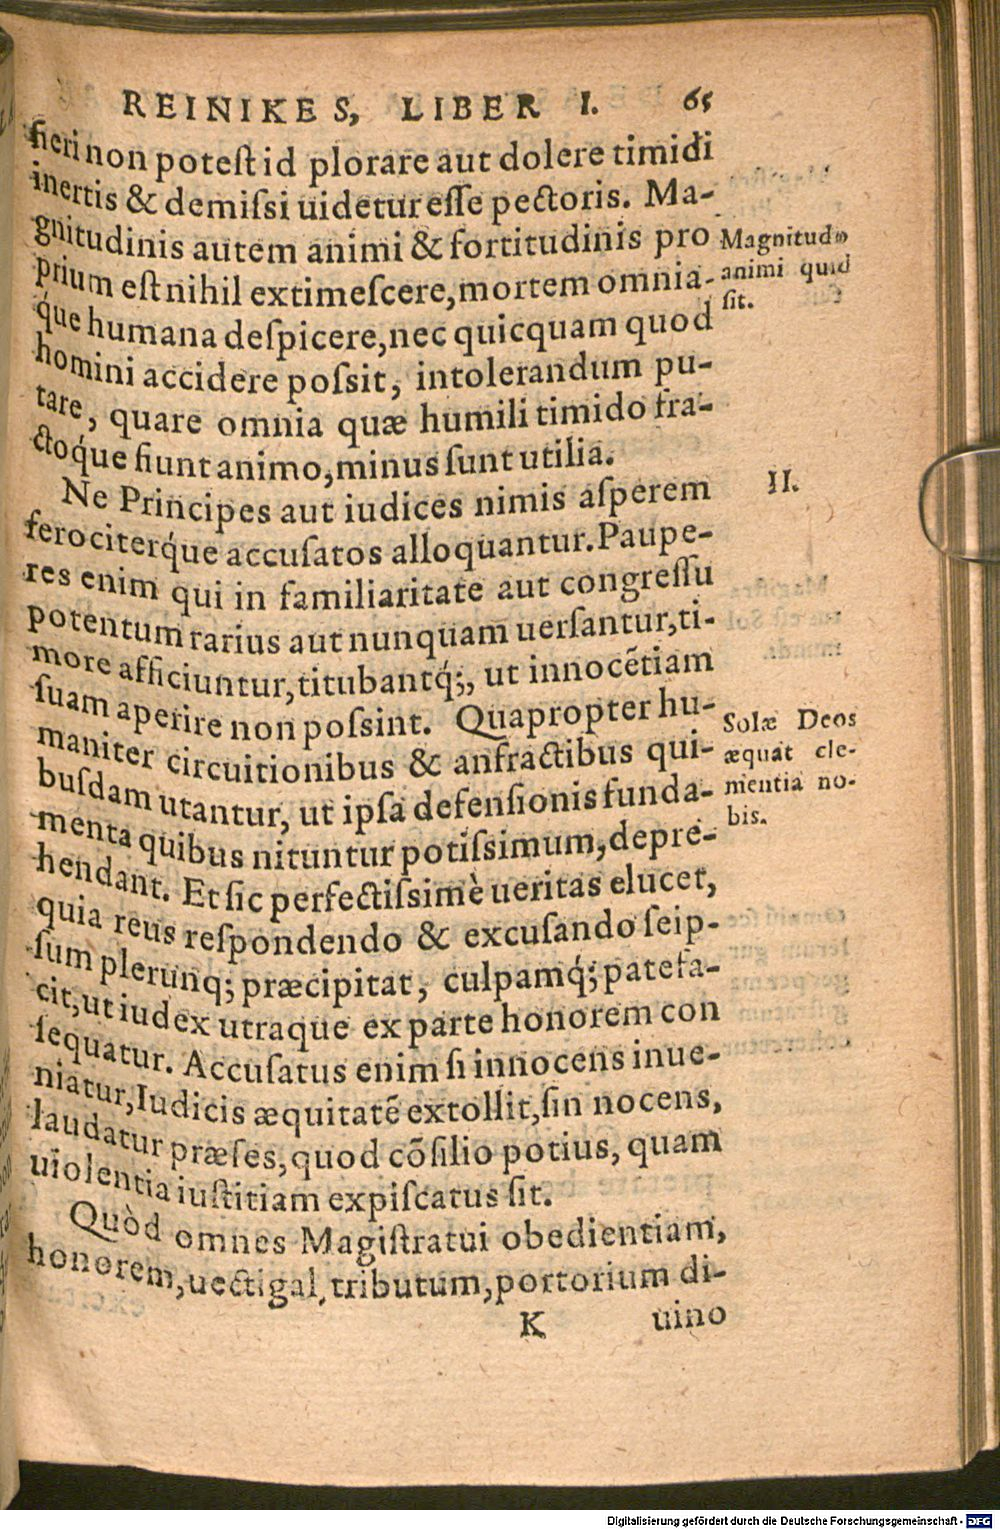 REINIKES, LIBER I. 65
fieri non potest id plorare aut dolere timidi
inertis & demiſsi uidetur eſſe pectoris. Ma-
gnitudinis autem animi & fortitudinis pro
prium est nihil extimeſcere, mortem omnia-
q́ue humana deſpicere, nec quicquam quod
homini accidere poſsit, intolerandum pu-
tare, quare omnia quæ humili timido fra-
ctoq́ue fiunt animo, minus ſunt utilia.
Magnitudo
animi quid
ſit.
Ne Principes aut iudices nimis aſperem
ferociterq́ue accuſatos alloquantur. Paupe-
res enim qui in familiaritate aut congreſſu
potentum rarius aut nunquam uerſantur, ti-
more afficiuntur, titubantq́;, ut innocẽtiam
ſuam aperire non poſsint. Quapropter hu-
maniter circuitionibus & anfractibus qui-
buſdam utantur, ut ipſa defenſionis funda-
menta quibus nituntur potiſsimum, depre-
hendant. Et ſic perfectiſsimè ueritas elucet,
quia reus reſpondendo & excuſando ſeip-
ſum plerunq; præcipitat, culpamq́; patefa-
cit, ut iudex utraque ex parte honorem con
ſequatur. Accuſatus enim ſi innocens inue-
niatur, Iudicis æquitatẽ extollit, ſin nocens,
laudatur præſes, quod cõſilio potius, quam
uiolentia iustitiam expiſcatus ſit.
II.
Solæ Deos
æquat cle-
mentia no-
bis.
Quòd omnes Magiſtratui obedientiam,
honorem, uectigal, tributum, portorium di-
K uino
Digitalisierung gefördert durch die Deutsche Forschungsgemeinschaft - DFG